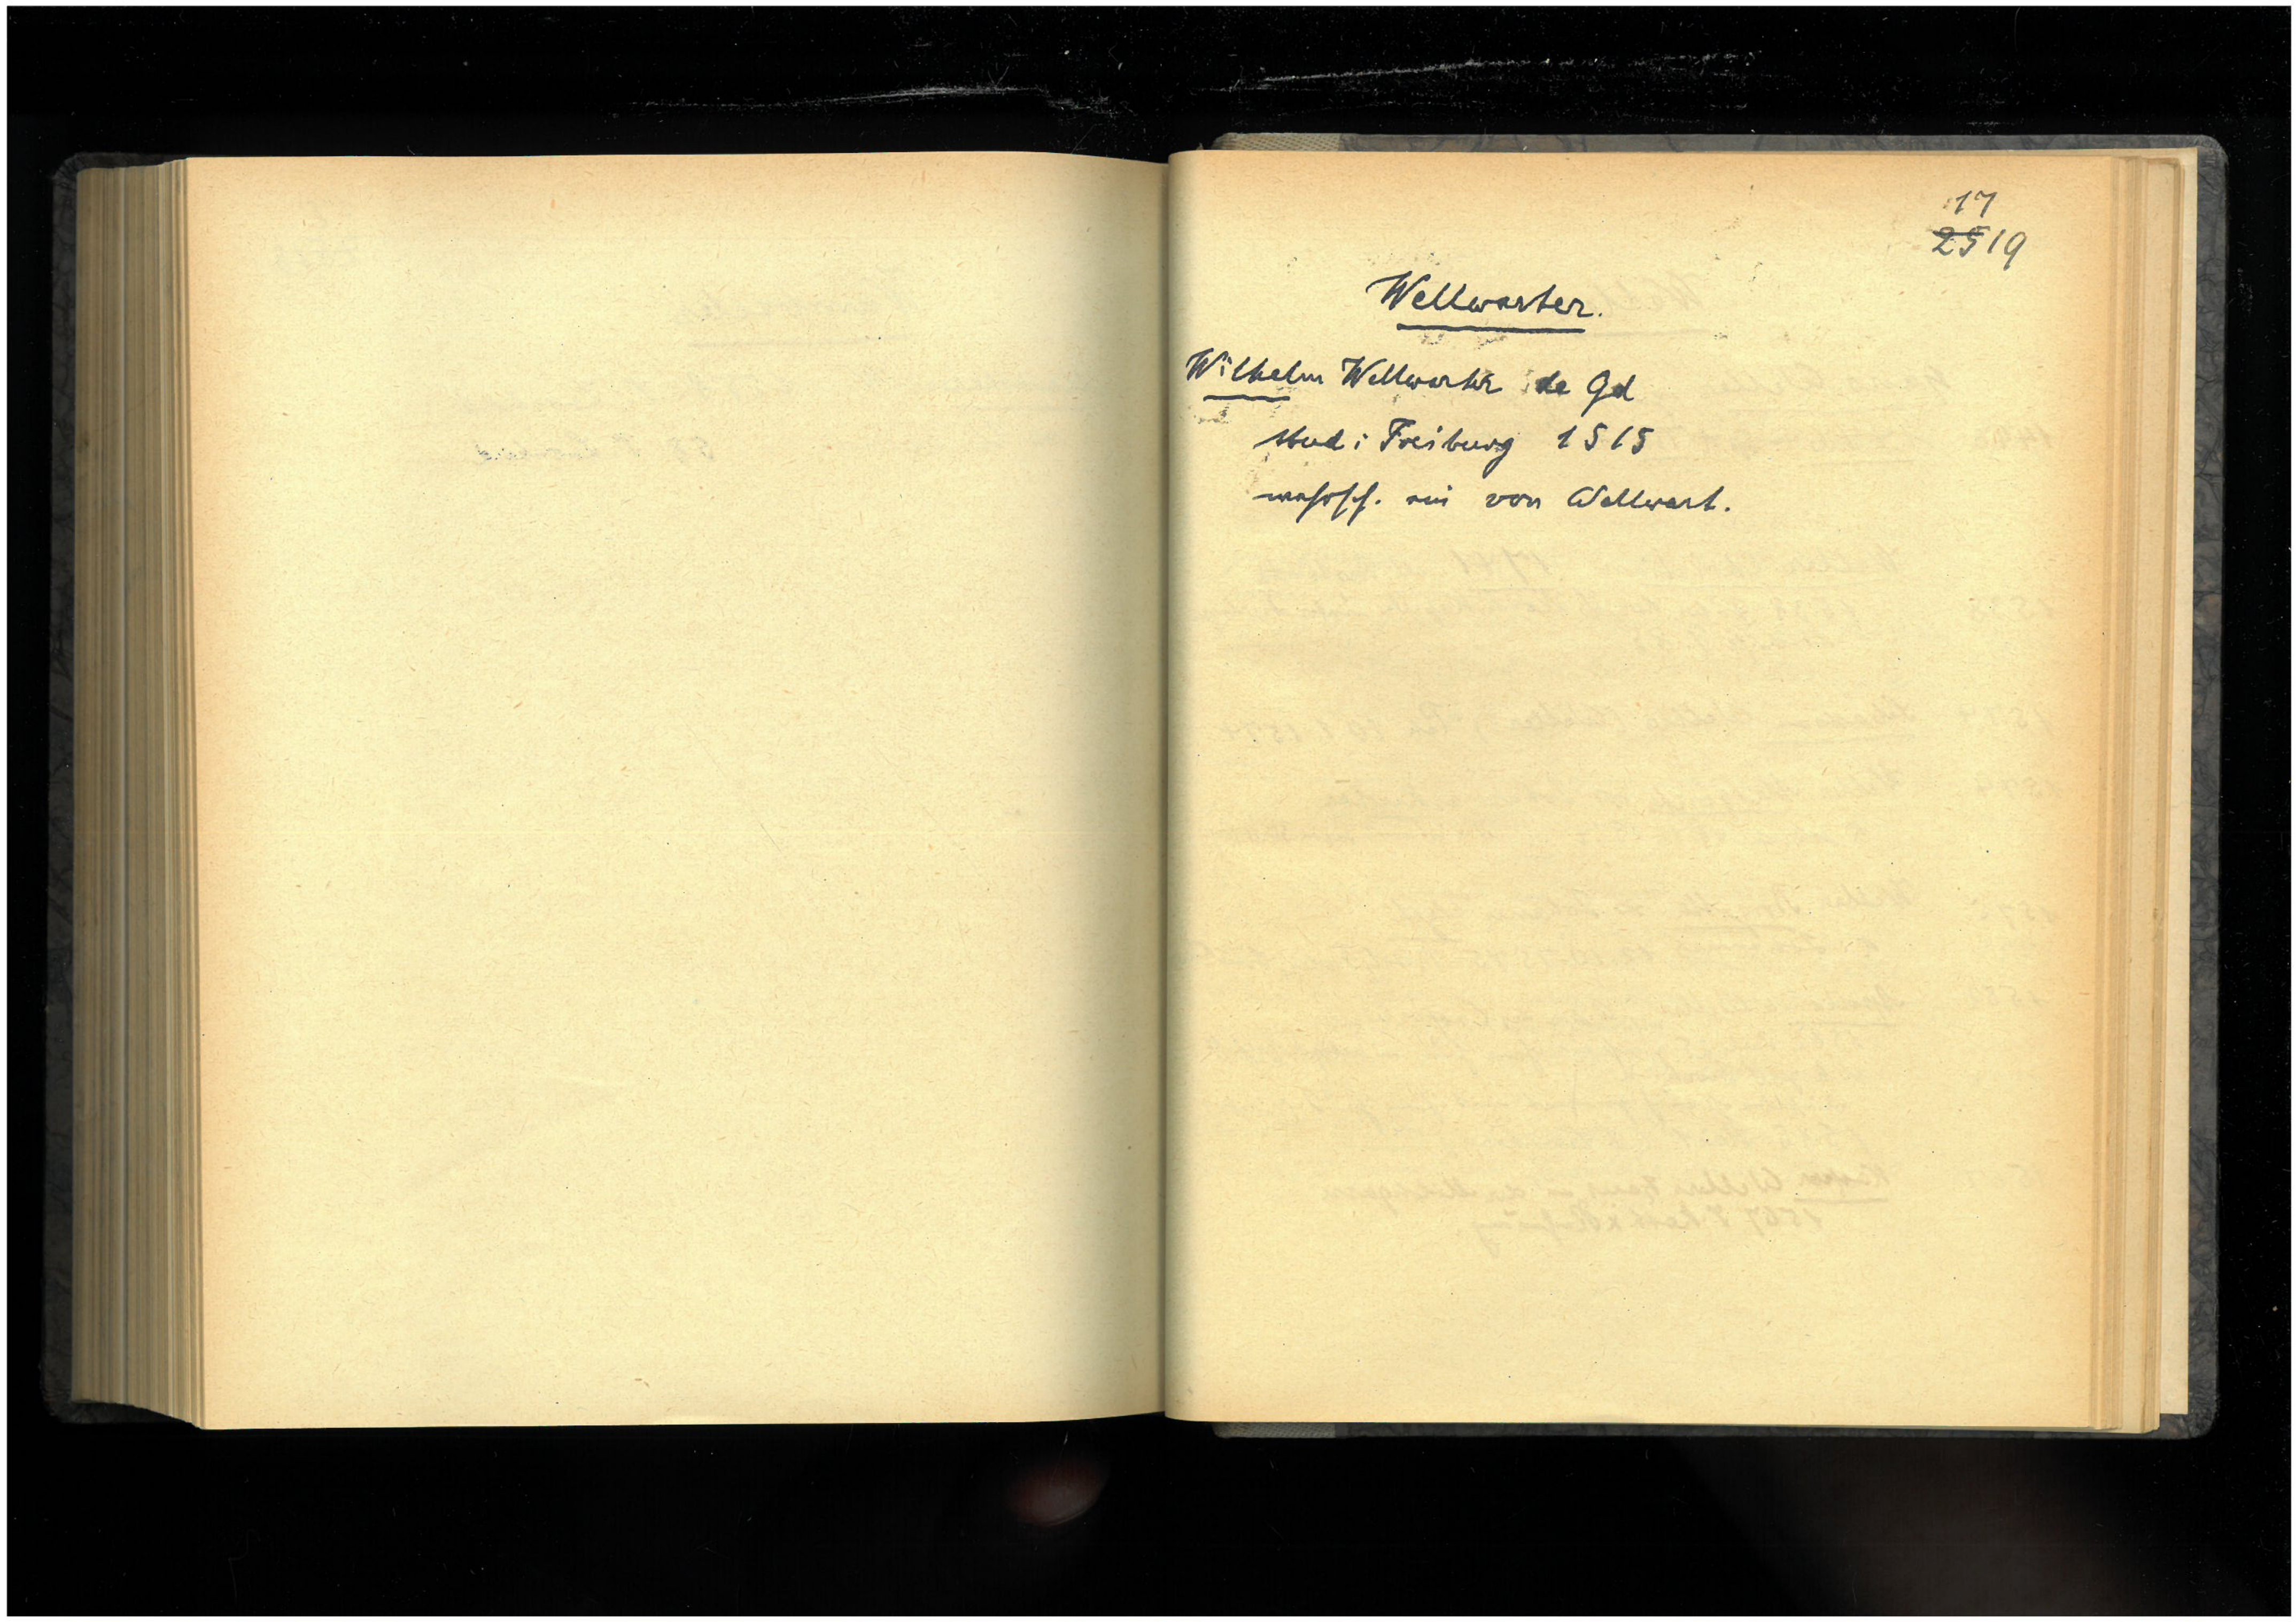 17
25 19
Wellwarter.
Wilhelm Wellwarter de Gd
stud i Freiburg 1515
wahrsch. ein von Wellwart.